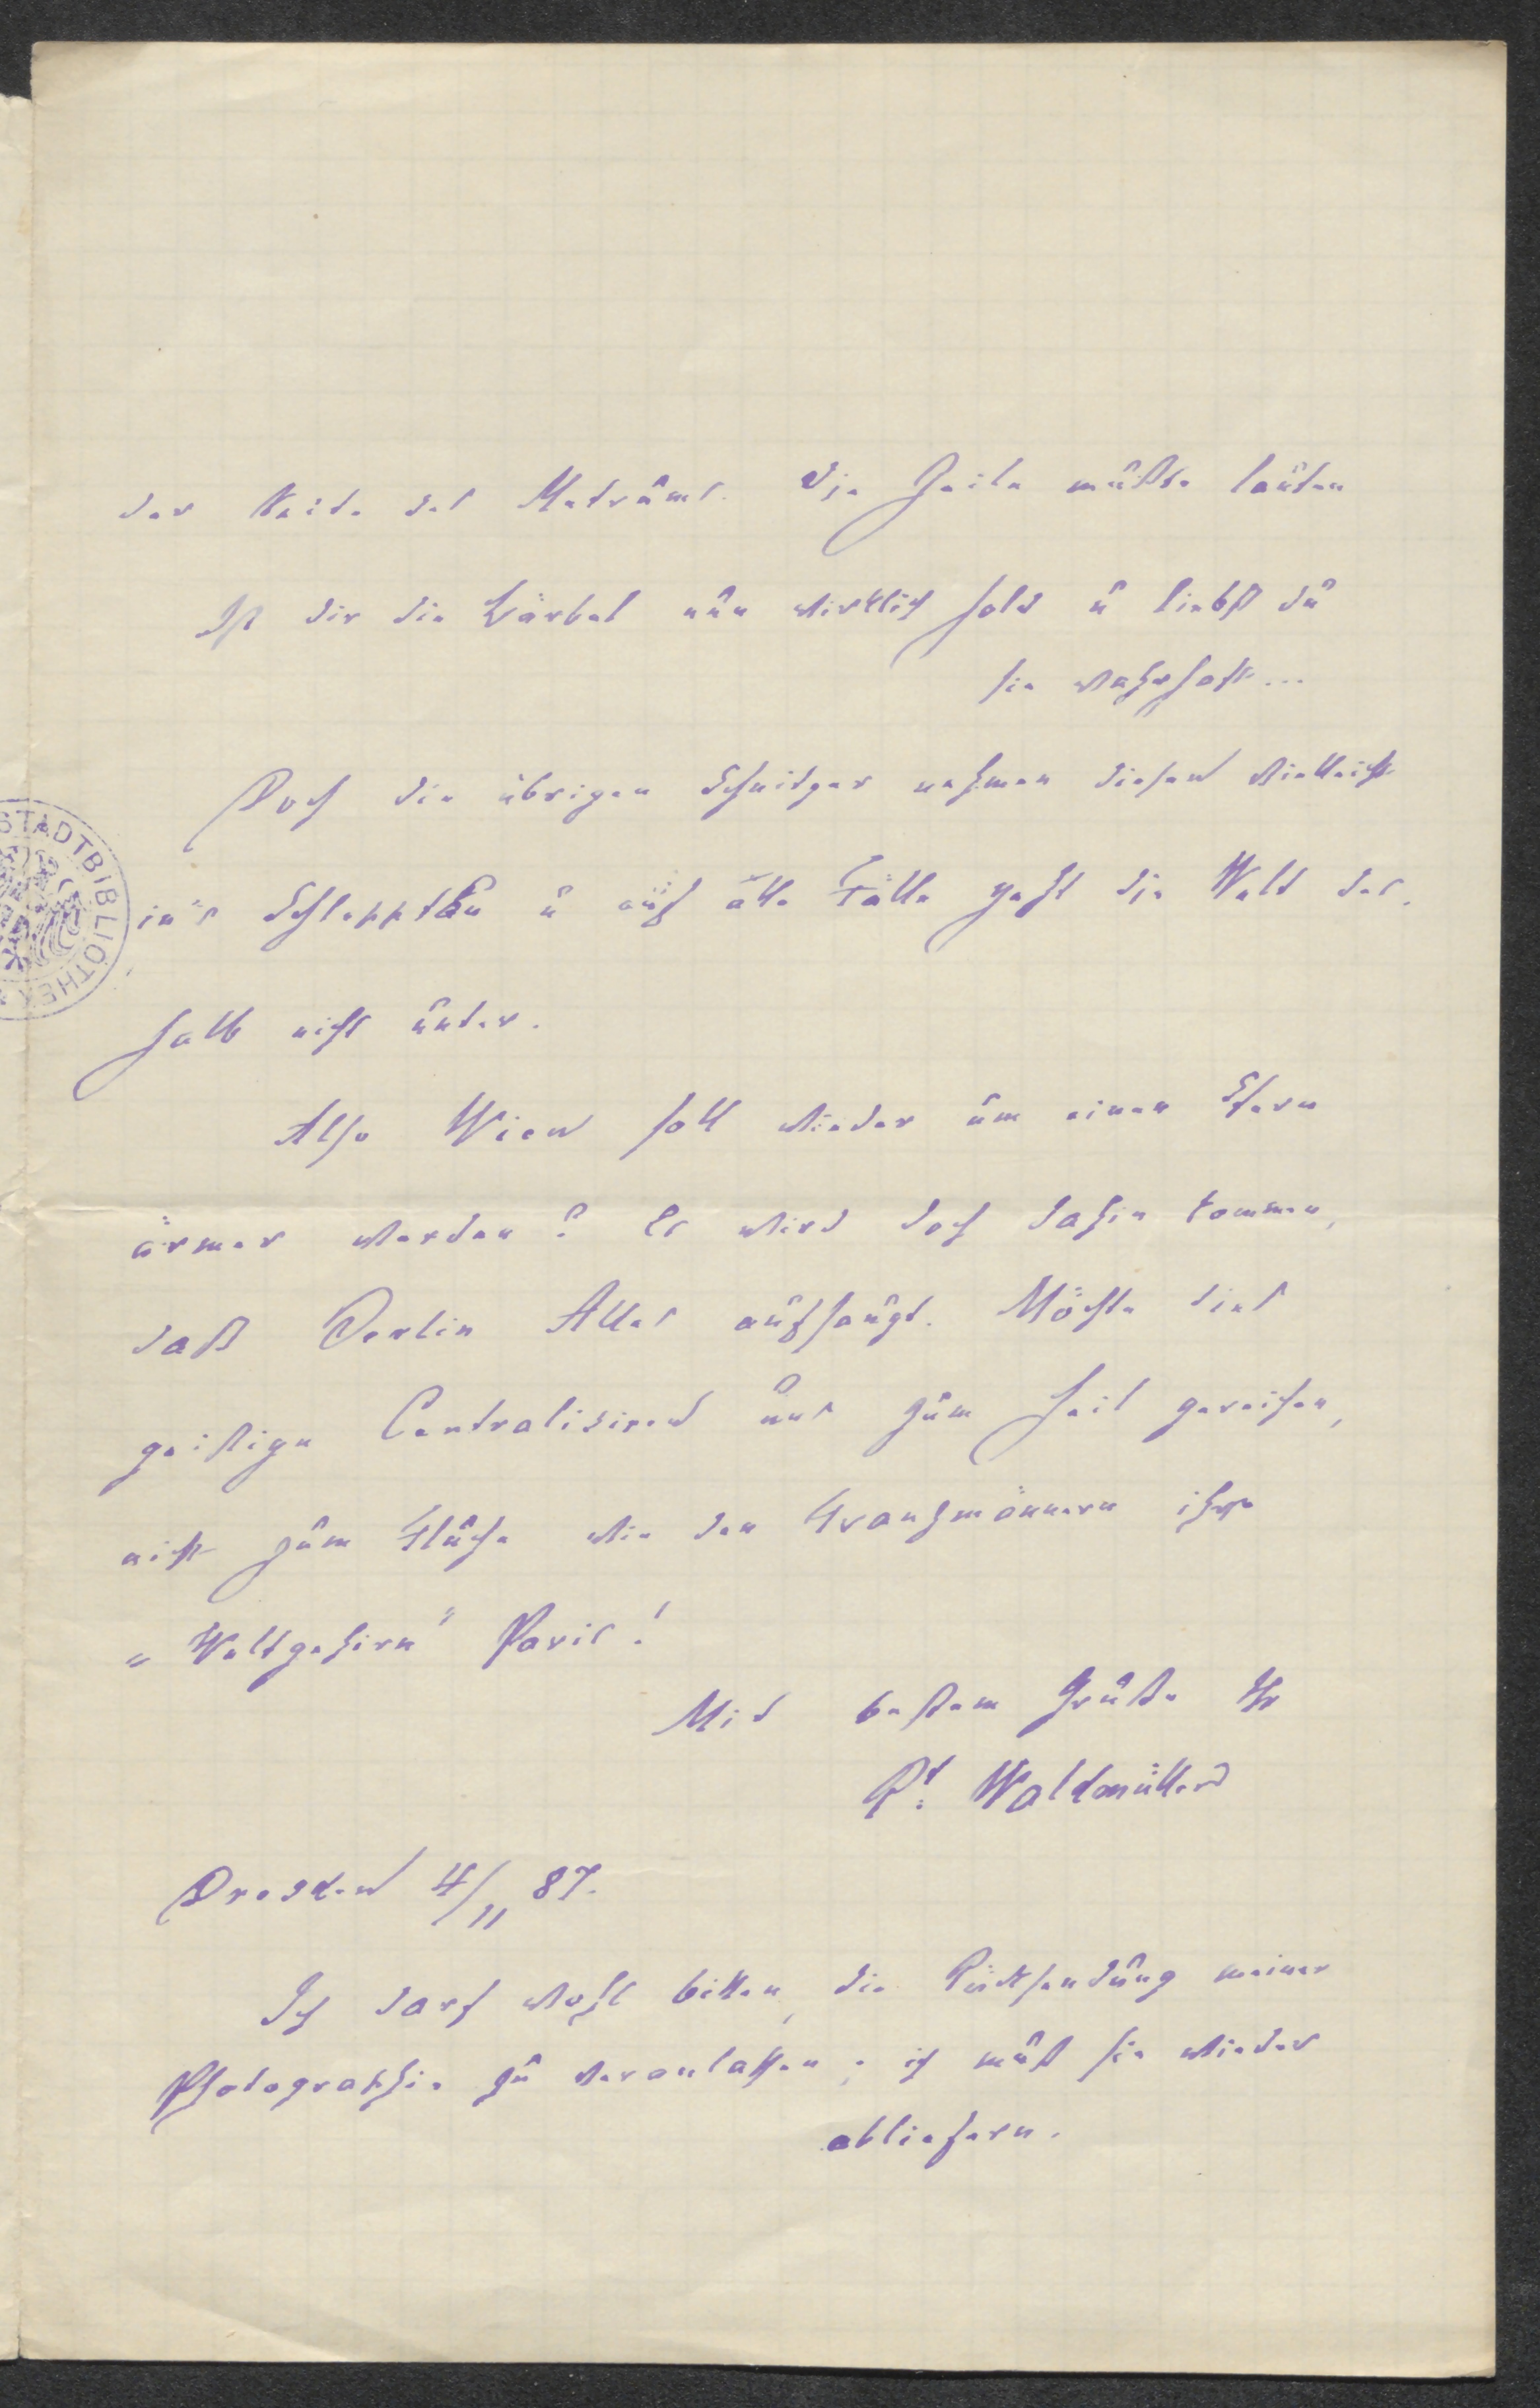 der Seite des Metrums. Die Zeile müßte lauten
Ist dir die Bärbel nun wirklich hold u liebst du
sie wahrhaft...
Doch die übrigen Schnitzer nehmen diesen vielleicht
in's Schlepptau u auf alle Fälle geht die Welt des-
halb nicht unter.
Also Wien soll wieder um einen Stern
ärmer werden? Es wird doch dahin kommen,
daß Berlin Alles aufsaugt. Möchte dies
geistige Centralisiren uns zum Heil gereichen,
nicht zum Fluche wie den Franzmännern ihr
„Weltgehirn" Paris!
Mit bestem Gruße Ihr
Rt. Waldmüller
Dresden 4/11 87.
Ich darf wohl bitten, die Rücksendung meiner
Photographie zu veranlassen; ich muß sie wieder
abliefern.
STADTBIBLIOTHEK